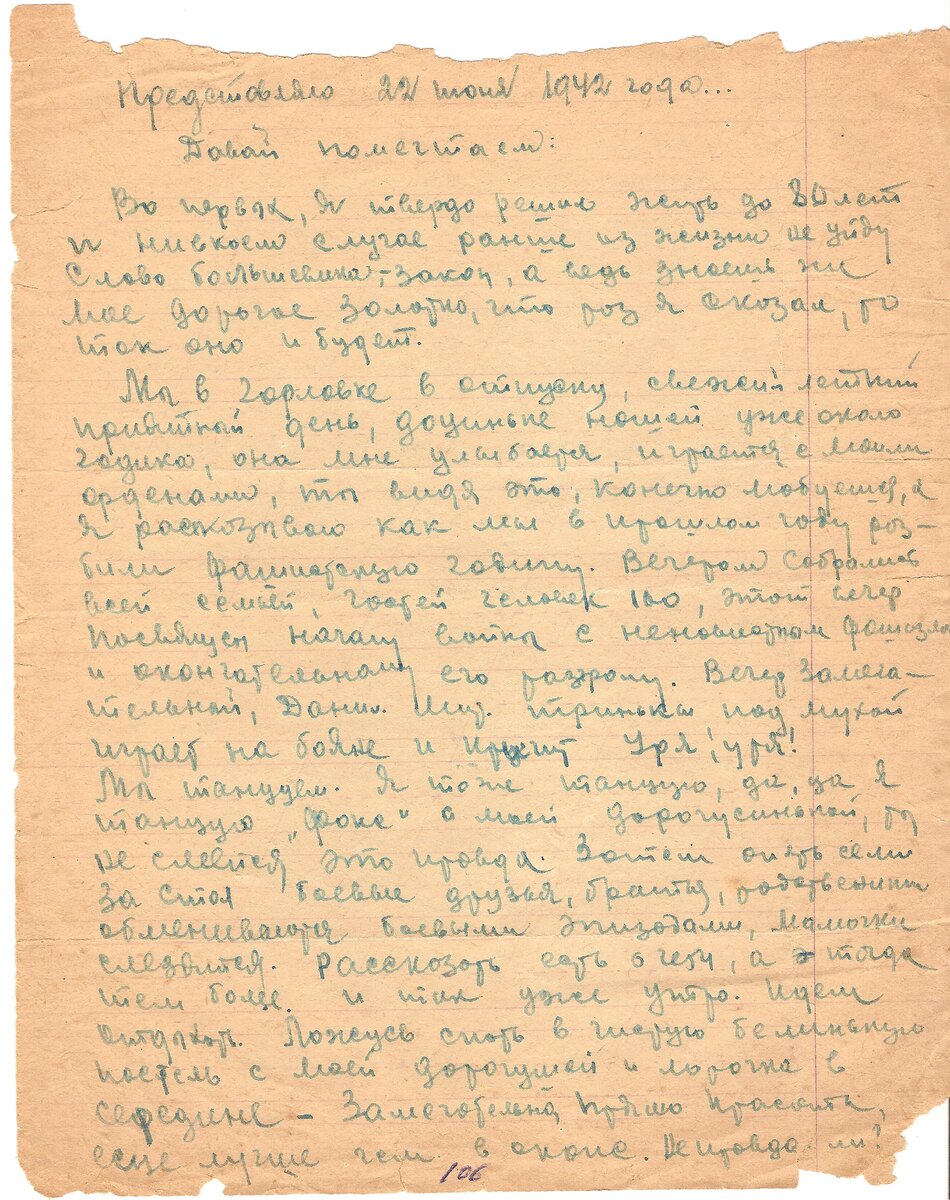 Представляю 22 июня 1942 года...
Давай помечтаем:
Во первых, я твердо решил жить до 80 лет
и нивкоем случае раньше из жизни не уйду
Слово большевика,-закон, а ведь знаешь же
мое дорогое золотко, что раз я сказал, то
так оно и будет.
Мы в Горловке в отпуску, свежий летний
приятный день, доциньке нашей уже около
годика, она мне улыбается, играется с моими
орденами, ты видя это, конечно любуешся, а
я рассказываю как мы в прошлом году раз-
били фашистскую гадину. Вечером собрались
всей семьей, гостей человек 100, этот вечер
посвящен началу войны с ненавистным фашизмом
и окончательному его разгрому. Вечер замеча-
тельный, Данил. под мухой
играет на баяне и кричит Уря! уря!
Мы танцуем. Я тоже танцую, да, да я
танцую „Фокс" с моей дорогусинькой, ты
не смейся это правда. Затем опять сели
за стол боевые друзья, братья, родственики
обмениваются боевыми эпизодами, мамочки
слезятся. Рассказать есть о чем, а тогда
тем более. и так уже утро. Идем
отдыхать. Ложусь спать в чистую белиньную
постель с моей дорогушей и в
середине - Замечательна прямо красота,
еще лучше чем в окопе. Не правда ли?
106